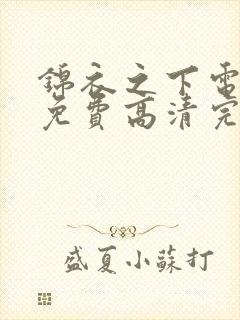 锦衣之下电
免费高清完
盛夏小蘇打